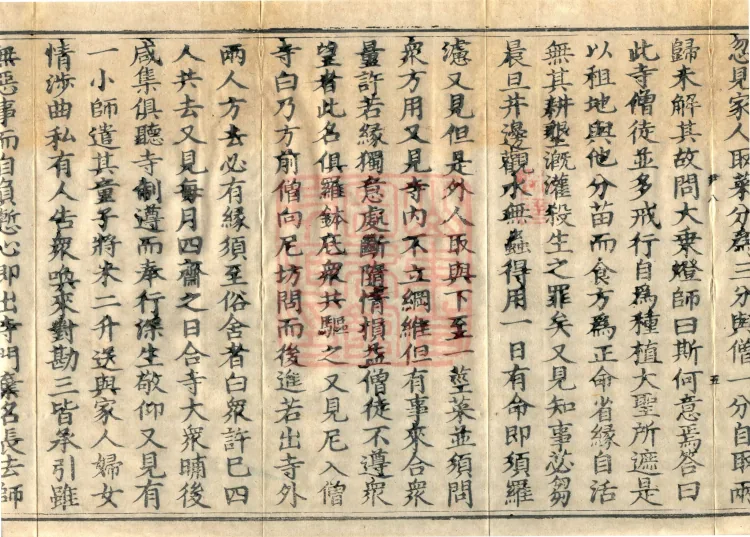 忽見家人取菜分爲三分與僧一分自取兩
歸未解其故問大乘燈師曰斯何意焉答曰
此寺僧徒並多戒行自爲種植大聖所遮是
以租地與他分苗而食方爲正命省緣自活
無其耕墾溉灌殺生之罪矣又見知事苾芻
晨旦井邊觀水無蟲得用一日有命即須羅
濾又見但是外人取與下至一莖菜並須問
衆方用又見寺內不立綱維但有事來合衆
量許若緣獨意處斷隨情損益僧徒不遵衆
望者此名俱羅鉢底衆共驅之又見尼入僧
寺白乃方前僧向尼坊問而後進若出寺外
兩人方去必有緣須至俗舍者白衆許已四
人共去又見每月四齋之日合寺大衆晡後
咸集俱聽寺制遵而奉行深生敬仰又見有
一小師遣其童子將米二升送與家人婦女
情涉曲私有人告衆喚來對勘三皆承引雖
無惡事而自負慙心即出寺門棄名長去師